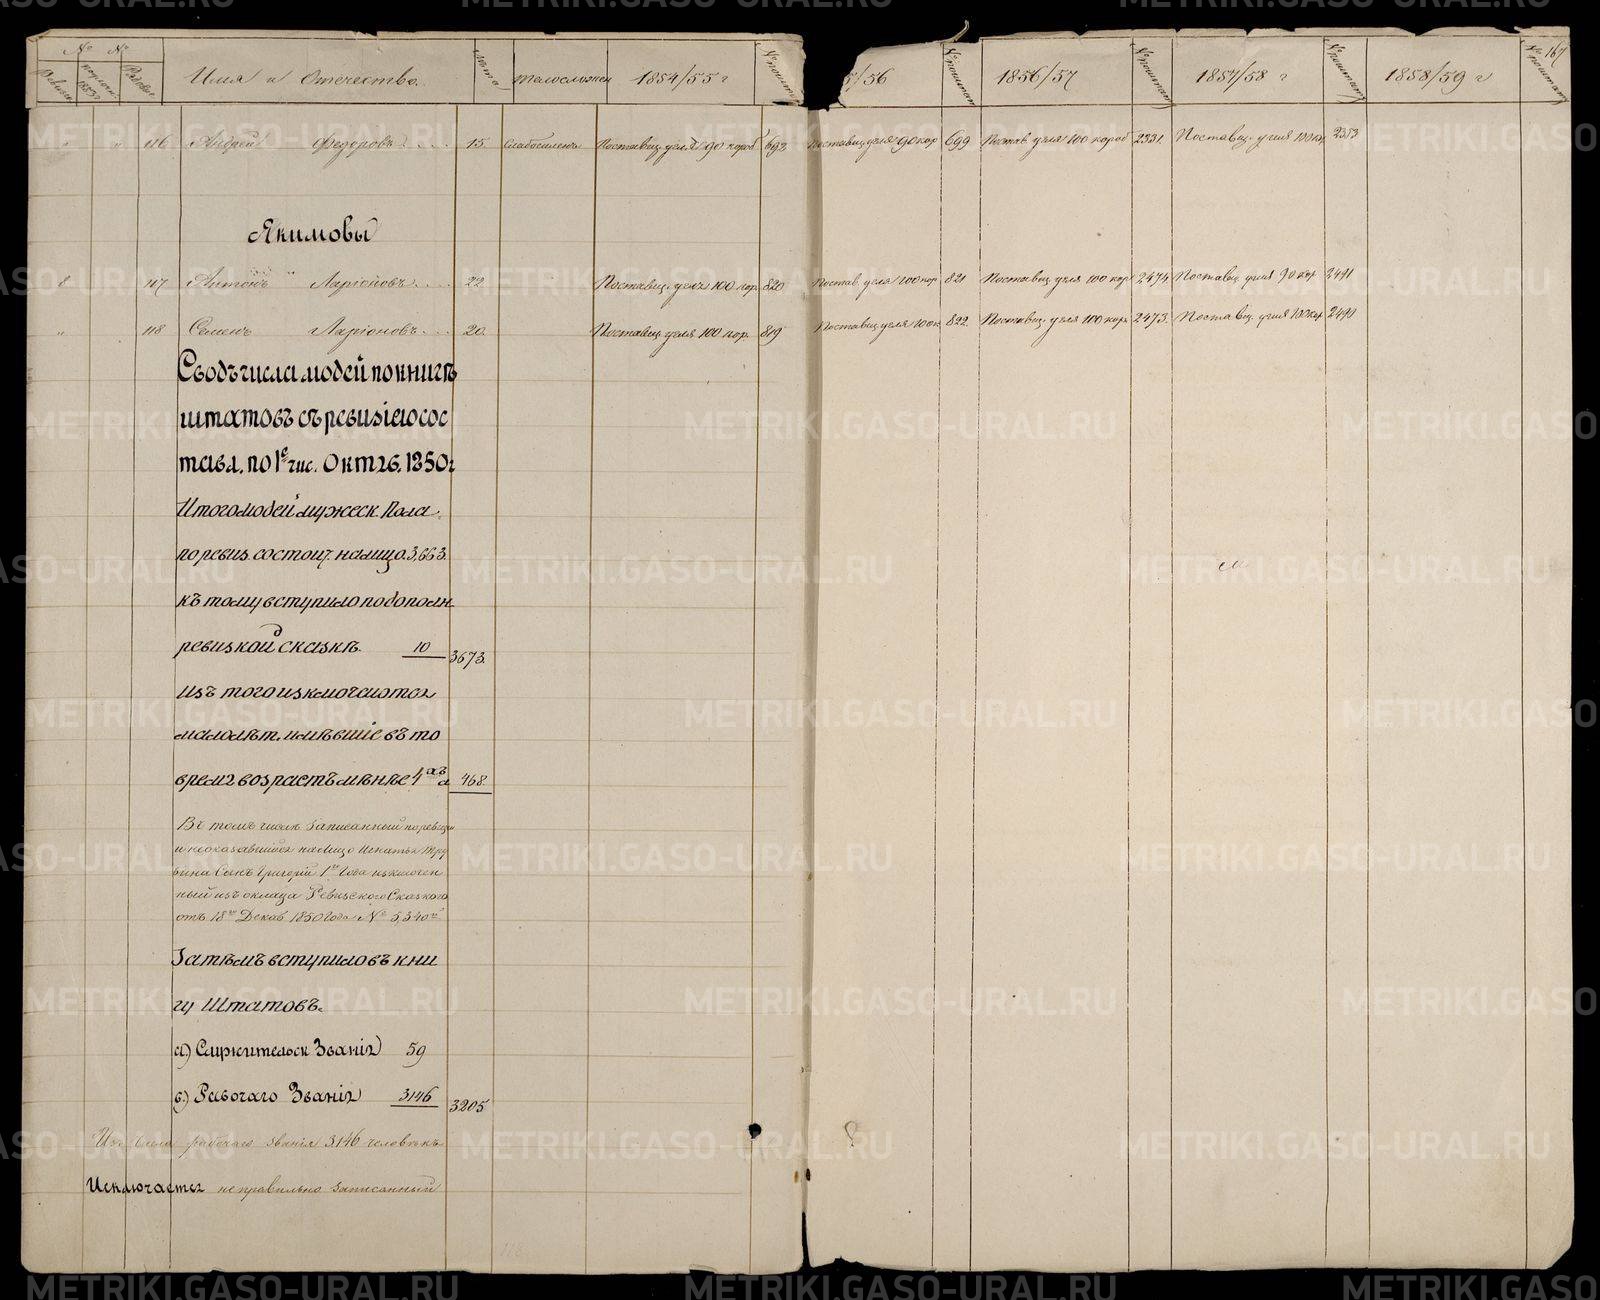 № № Имя и Отечество. Лета Телосложен 1854/55 г № по штат 5/56 № по штат 1856/57 № по штат 1857/58 г № по штат 1858/59 г № по штат 167
Ревизск. Рядовые
" " 116 Андрей Федоровъ 15. Слабосиленъ Поставщ. угля 90 короб 698 Поставщ. угля 90 кор 699 Постав. угля 100 короб 2331. Поставщ. угля 100 кор. 2353
Якимовы
8 117 Антонъ Ларіоновъ 22 Поставщ. угля 100 кор. 820 Постав. угля 100 кор. 821 Поставщ. угля 100 кор 2474. Поставщ. угля 90 кор 2491
" 118 Семенъ Ларіоновъ 20. Поставщ. угля 100 кор. 819 Поставщ. угля 100 к 822. Поставщ. угля 100 кор. 2473. Поставщ. угля 100 кор. 2490
Сводъ числа людей по книгѣ
штатовъ съ ревизіею сос
тава. по 1е чис. Октяб. 1850 г
Итого людей мужеск. Пола
по ревиз. состоит. налицо. 3,663.
къ тому вступило по дополн
ревизкой сказкѣ. 10 3673.
изъ того изключается
малолѣт. имѣвшіе въ то
время возрастъ менѣе 4хъ л 468.
Въ томъ числѣ записанный по ревизіи
и неоказавшійся на лицо Игнатья Тру
бина Сынъ Григорій 1го Года изключен
ный изъ оклада Ревизского Сказкою
отъ 18го Декаб 1850 года № 5,340й
Затѣмъ вступило въ кни
гу Штатовъ.
а) Служительск Званія 59
в) Рабочаго Званія 3146 3205
Изъ числа рабочаго званія 3146 человѣкъ
Исключается неправильно записанный
118
METRIKI.GASO-URAL.RU